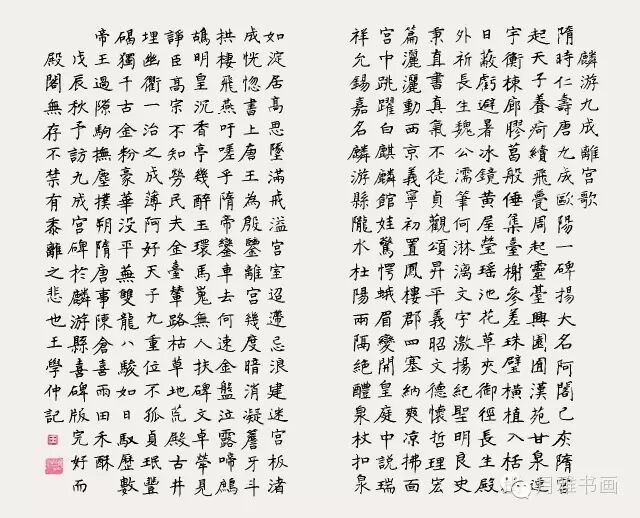 麟游九成離宮歌
隋時仁壽唐九成歐陽一碑揚大名阿閣已灰隋宮
起天子養疴續飛甍周起靈臺興囿漢苑甘泉連
宇衡棟廊膠葛般倕集臺榭參差珠璧橫植入栝
日蔽虧避暑冰鏡黃屋瑩瑤池花草夾御徑長生殿
外祈長生魏公濡筆何淋漓文字激揚紀聖明良史
秉直書真氣不徒貞觀頌昇平義昭文德懷哲理宏
篇灑灑動兩京義寧初置鳳樓郡四塞納爽凉拂面
宮中跳躍白麒麟館娃驚愕蛾眉變開皇庭中説瑞
祥允錫嘉名麟游縣隴水杜陽兩隔絶醴泉杖扣泉
如淀居高思墜滿戒溢宮室迢遭忌浪建迷宮板渚
成恍惚書上唐王為殷鑒離宮幾度暗消凝薝牙斗
拱棲飛燕吁嗟乎隋帝鑾車去何速金盤泣露啼鷓
鴣明皇沉香亭幾醉玉環馬嵬無人扶碑文卓犖見
諍臣高宗不知勞民夫金臺輦路枯草地荒殿古井
埋幽衢一治之成薄阿好天子九重位不孤貞珉豐
碣獨千古金粉豪華没平蕪雙龍八駿如日馭歷數
帝王過隙駒撫塵摸朔隋唐事陳倉喜雨田禾酥
戊辰秋予訪九成宮碑於麟游縣喜碑版完好而
殿閣無存不禁有黍離之悲也王學仲記
雅书画